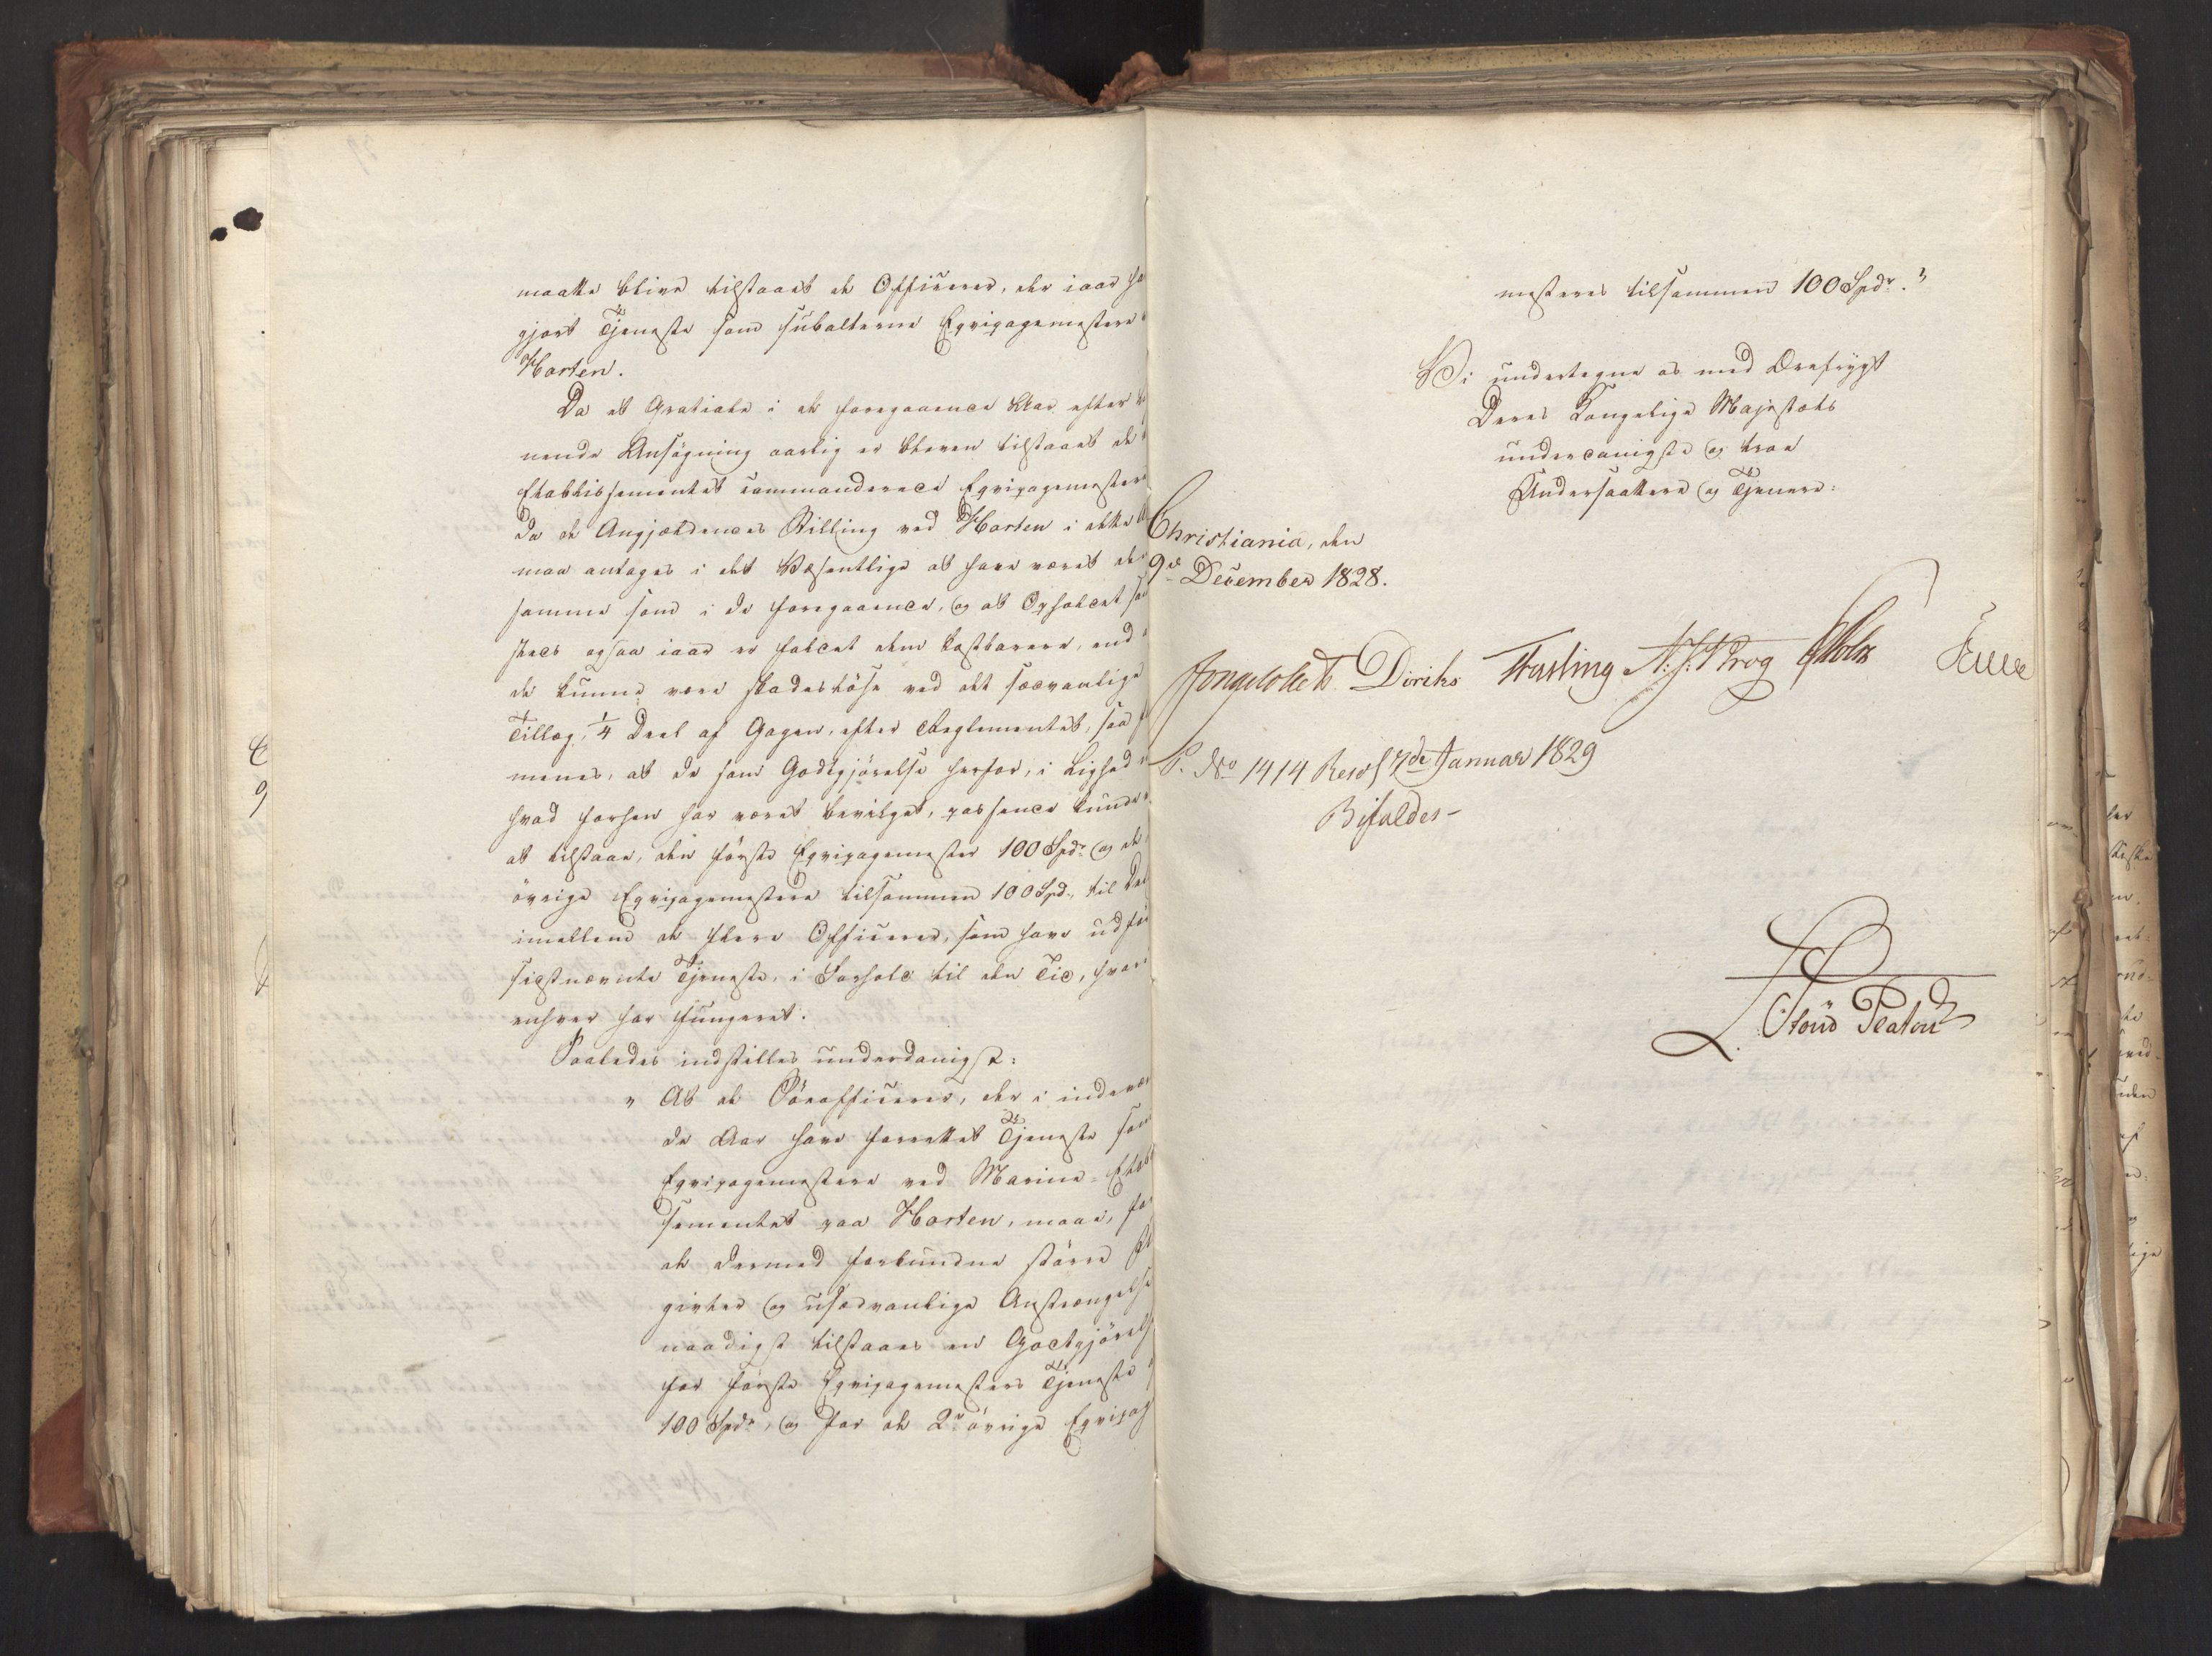 maatte blive tilstaaet de Officierer, der iaar ha
gjort Tjeneste som subalterne Eqvipagemestere
Horten.
Da et Gratiale i de foregaaende Aar efter
nende Ansögning aarlig er bleven tilstaaet de
Etablissementet commanderede Eqvipagemestere
da de Angjældendes Stilling ved Horten i dette
maa antages i det Væsentlige at have været de
samme som i de foregaaende, og at Opholdet
stedet ogsaa iaar er faldet dem kostbarere, end
de kunne være skadeslöse ved det sædvanlige
Tillæg, 1/4 Deel af Gagen, efter Reglementet, saa
menes, at de som Godtgjörelse herfor, i Lighed
hvad forhen har været bevilget, passende kunde
at tilstaae, den förste Eqvipagemester 100 Spdr og de
övrige Eqvipagemestere tilsammen 100 Spd., til
imellem de flere Officierer, som have udfö
sidstnævnte Tjeneste, i Forhold til den Tid, hvori
enhver har fungeret.
Saaledes indstilles underdanigst:
" At de Söeofficierer, der i indevæ
de Aar have forrettet Tjeneste som
Eqvipagemestere ved Marine-Etab
sementet paa Horten, maae, for
de dermed forbundne större
givter og usædvanlige Anstrængelse
naadigst tilstaaes en Godtgjörelse
for förste Eqvipagemesters Tjeneste
100 Spdr, og for de 2de övrige Eqvipag
mesteres tilsammen 100 Spdr."
Vi undertegne os med Ærefrygt
Deres Kongelige Majestæts
underdanigste og troe
Undersaattere og Tjenere:
Christiania, den
9de December 1828.
Jonas Collett Diriks Fasting A:J:Krog Holst
P. No 1414 Resol 7de Januar 1829
Bifaldes-